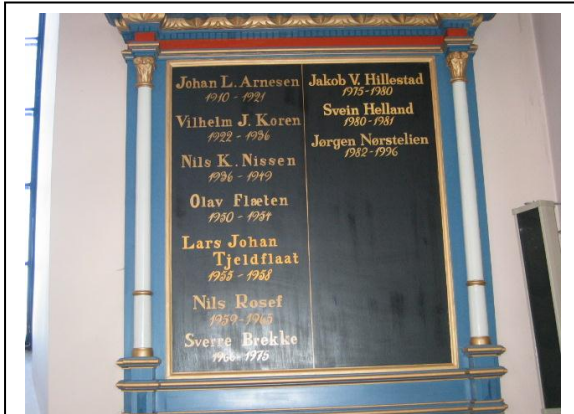 Johan L. Arnesen
1910 - 1921
Vilhelm J. Koren
1922 - 1936
Nils K. Nissen
1936 - 1949
Olav Flæten
1950 - 1954
Lars Johan
Tjeldflaat
1955 - 1958
Nils Rosef
1959 - 1965
Sverre Brekke
1966 - 1975
Jakob V. Hillestad
1975-1980
Svein Helland
1980-1981
Jørgen Nørstelien
1982-1996